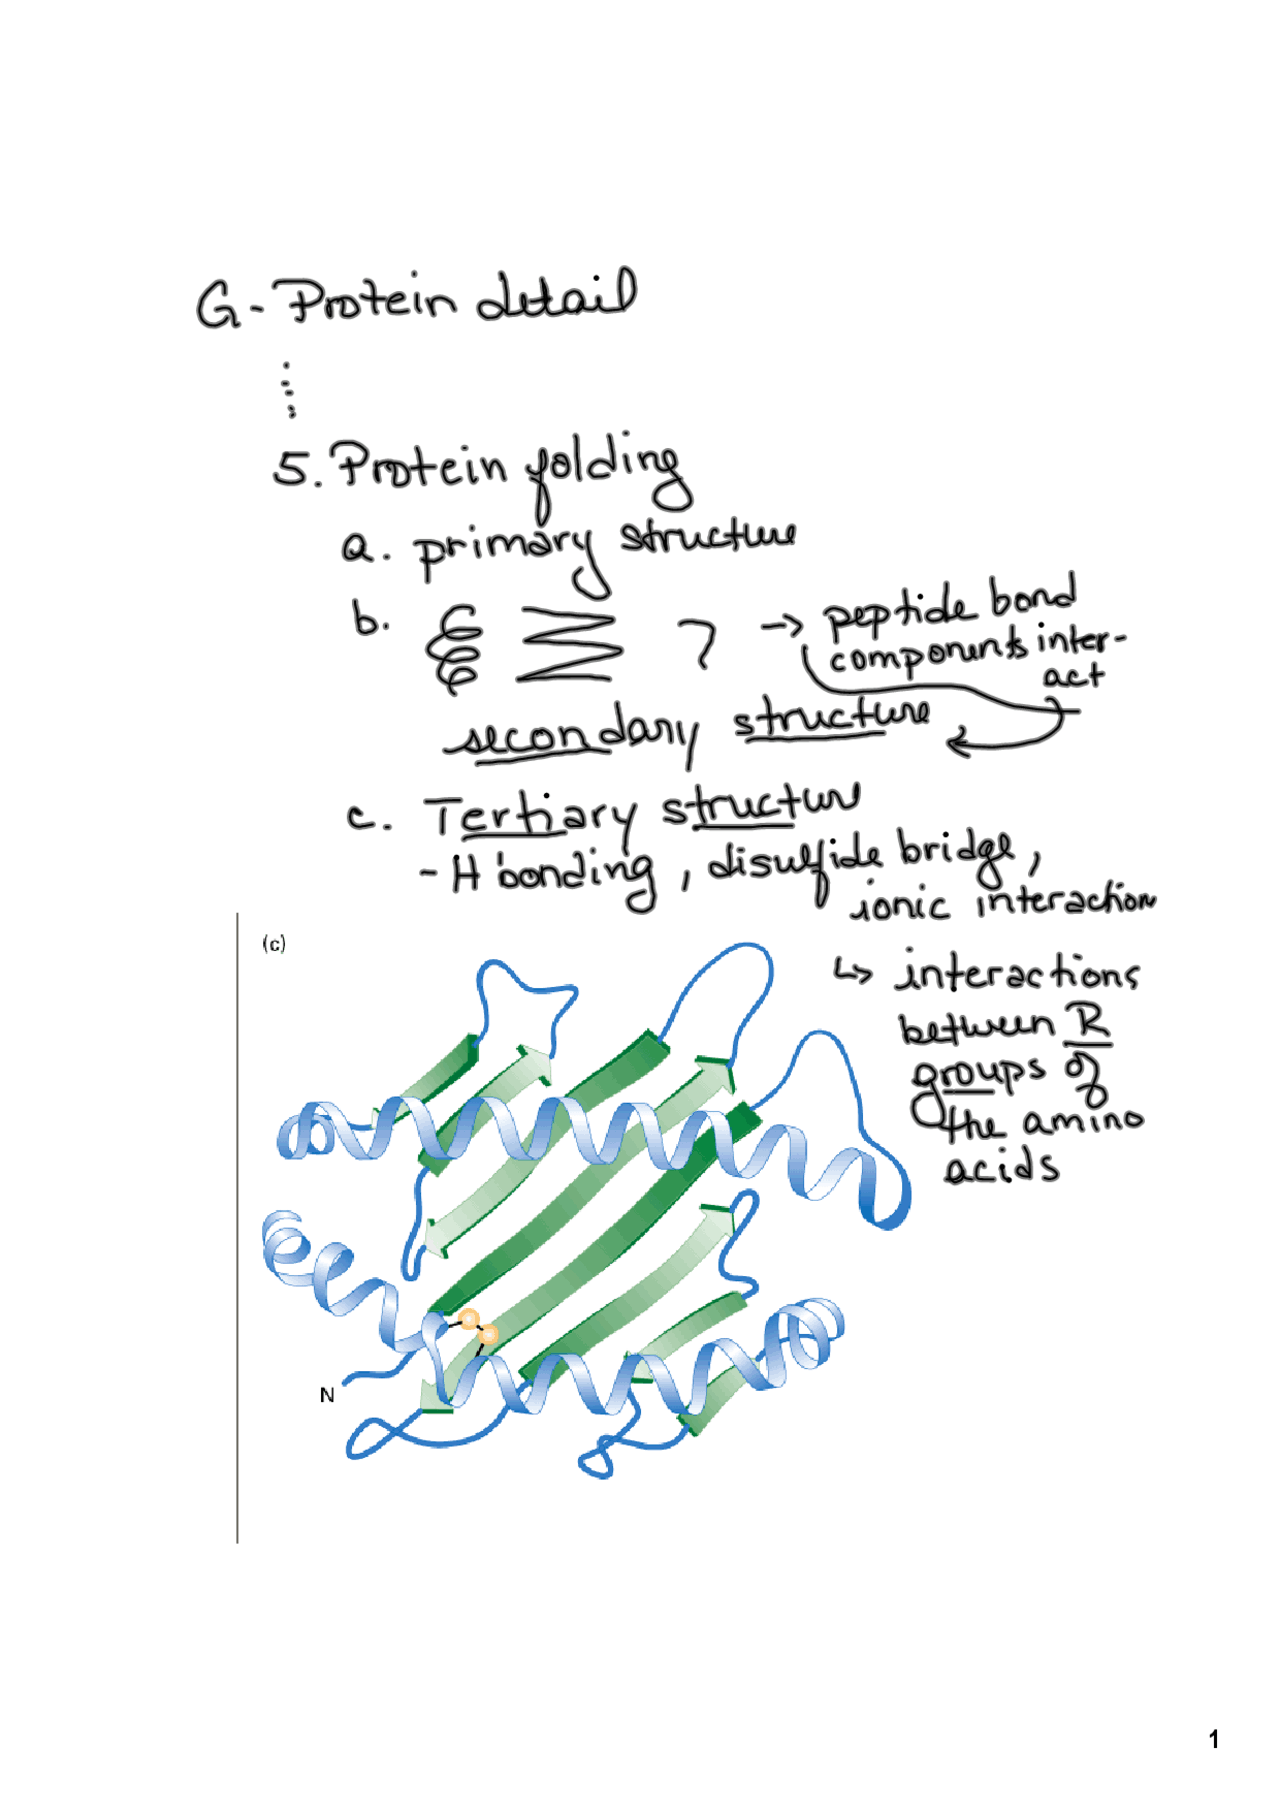 G - Protein detail
5. Protein folding
a. primary structure
b. → peptide bond
components inter-
act
secondary structure
c. Tertiary structure
- H bonding, disulfide bridge,
ionic interaction
(c)
↳ interactions
between R
groups of
the amino
acids
N
1